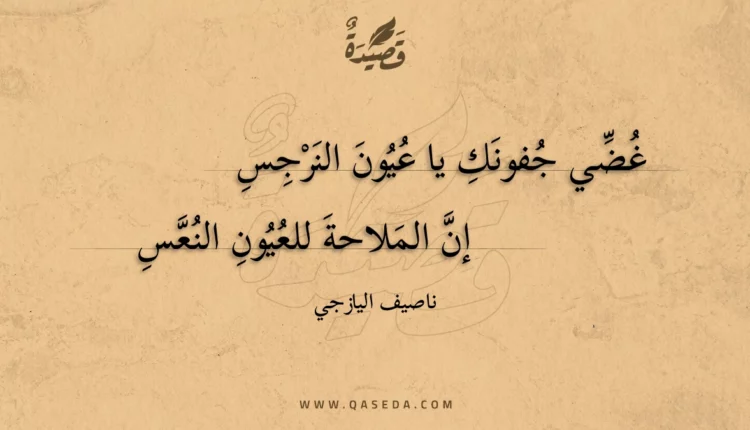 قَصِيْدَةٌ
غُضِّي جُفونَكِ يا عُيُونَ النَرْجِسِ
إنَّ المَلاحةَ للعُيُونِ النُعَّسِ
ناصيف اليازجي
WWW.QASEDA.COM